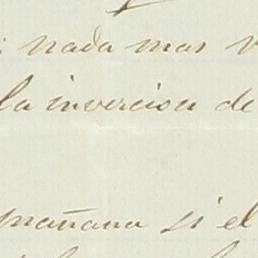 nada mas
la invercion de
mañana si el